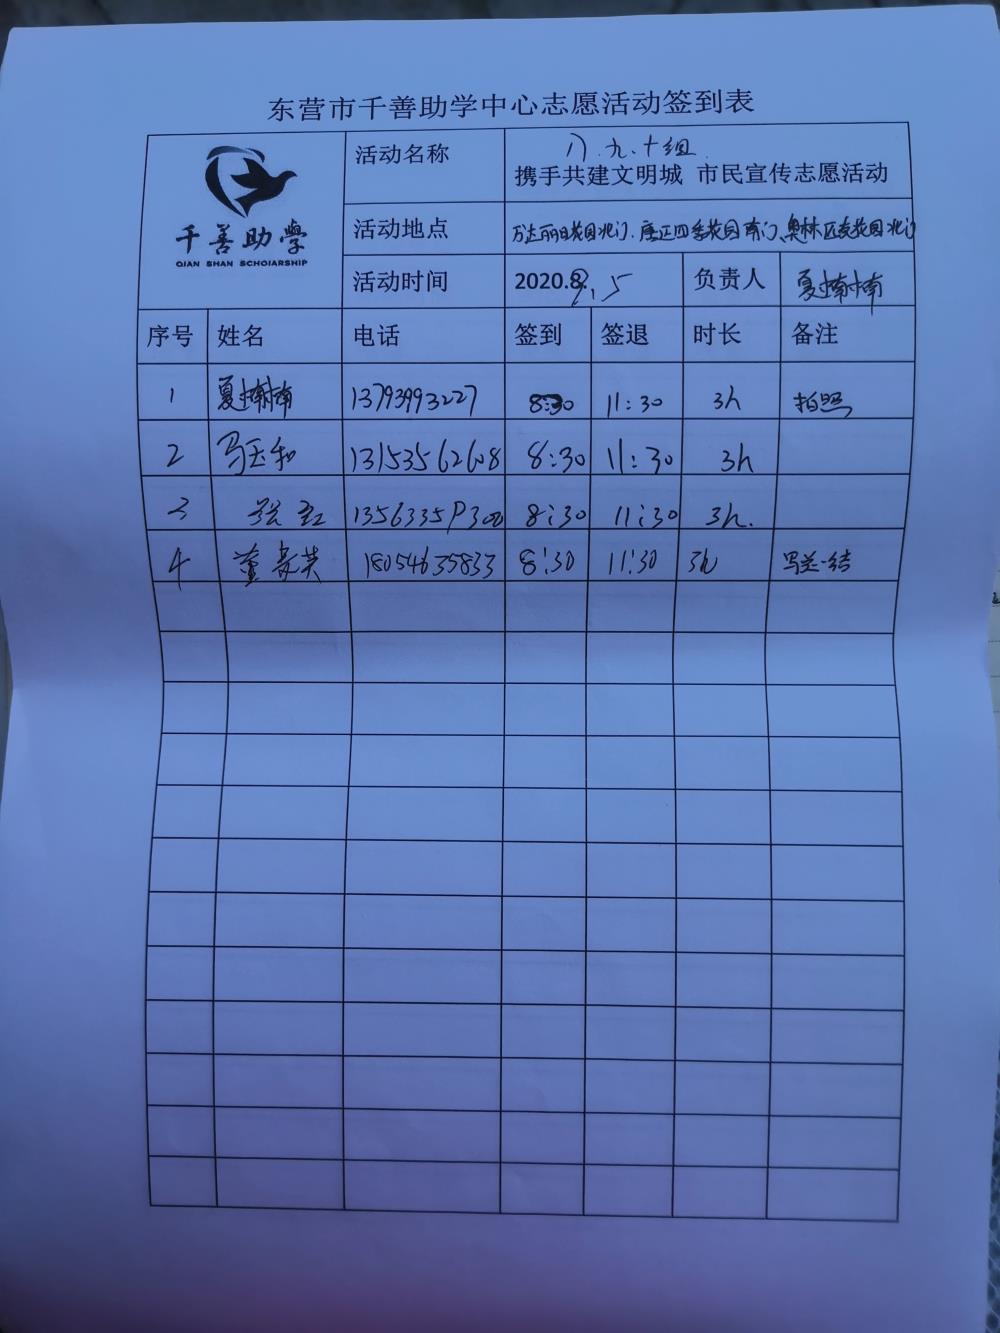 东营市千善助学中心志愿活动签到表
千善助學
QIAN SHAN SCHOIARSHIP
活动名称 八.九.十组
携手共建文明城 市民宣传志愿活动
活动地点 万达丽日花园北门、康正四季花园南门、奥林 花园北门
活动时间 2020.8 9.5 负责人 夏楠楠
序号 姓名 电话 签到 签退 时长 备注
1 夏楠楠 13793993227 8:30 11:30 3h 拍照
2 马玉和 13153562608 8:30 11:30 3h
3 张 1356335 8:30 11:30 3h.
4 董 英 18054635833 8:30 11:30 3h 写总结